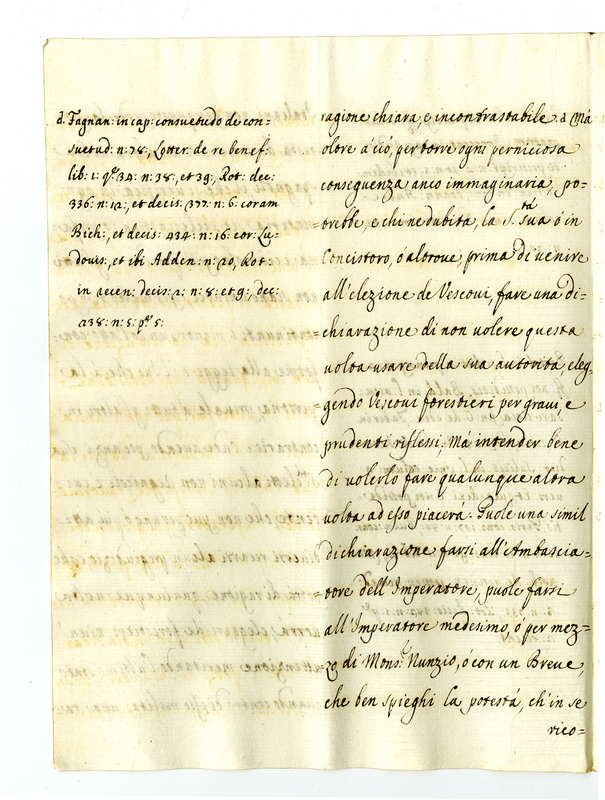 d. Fagnan: in cap: consuetudo de con=
suetud: n: 78, Lotter: de re benef:
lib: 1: q.e 34: n: 38:, et 39:, Rot: dec:
336: n: 12:, et decis: 377: n: 6: coram
Bich:, et decis: 434: n: 16: cor: Lu=
douis:, et ibi Adden: n: 20, Rot:
in recen: decis: 2: n: 8: et 9:, dec:
238: n: 5: p.e 5:
ragione chiara, e incontrastabile. d Má
oltre a' ció, per torre ogni perniciosa
conseguenza anco immaginaria, po=
=trebbe, e chi ne dubita, la S.tá sua ó in
Concistoro, ó altroue, prima di uenire
all'elezione de Vescoui, fare una di=
=chiarazione di non uolere questa
uolta usare della sua autoritá, eleg=
=gendo Vescoui forestieri per graui, e
prudenti riflessi; Má intender bene
di uolerlo fare qualunque altra
uolta ad esso piacerá. Puole una simil
dichiarazione farsi all'Ambascia=
=tore dell'Imperatore, puole farsi
all'Imperatore medesimo, ó per mez=
=zo di Mons.e Nunzio, ó con un Breue,
che ben spieghi la potestá, ch'in se
rico=